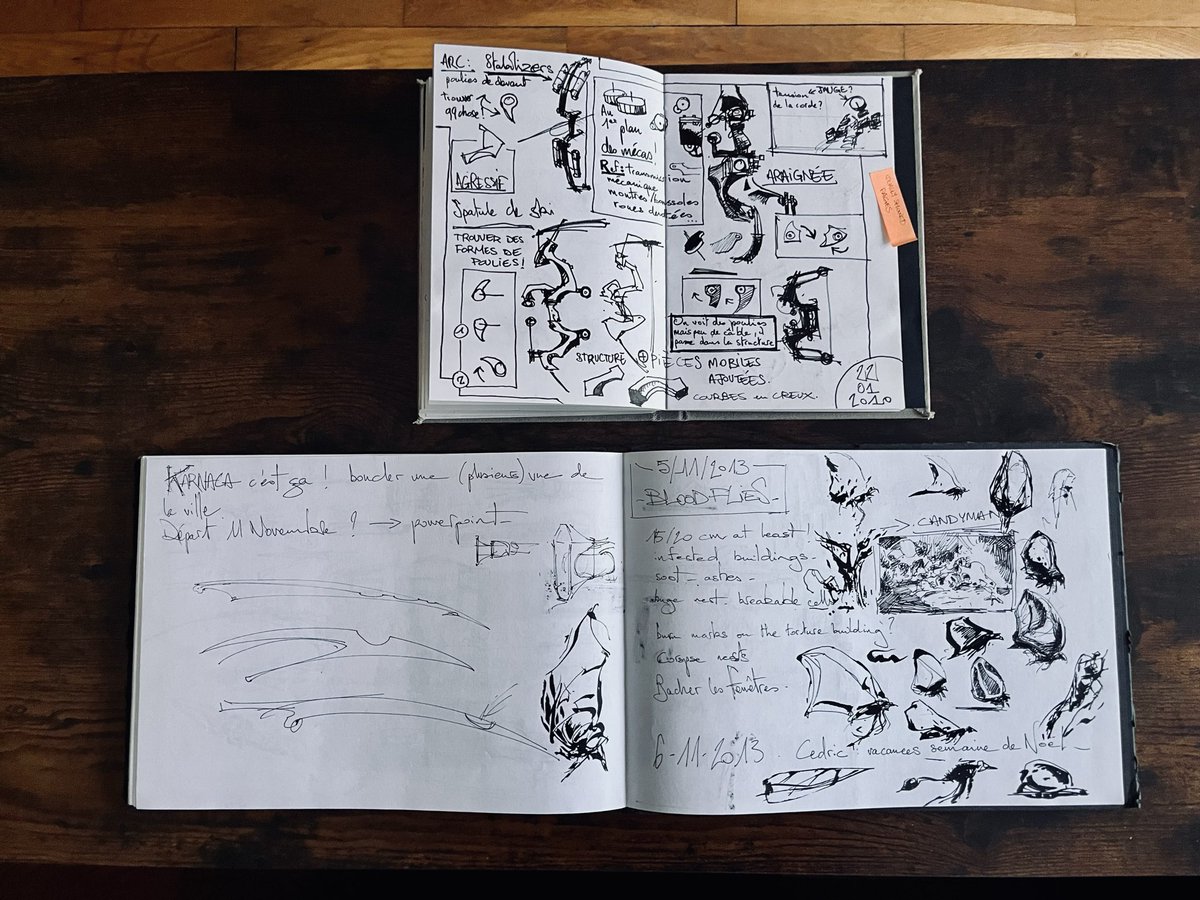 ARC: Stabilizers
poulies de devant
trouver
qqchose!
AGRESSIF
Spatule de ski
TROUVER DES
FORMES DE
POULIES!
1
2
Au
1er plan
des mécas!
Ref: transmission
mécanique
montres/boussoles
roues dentées...
STRUCTURE ⊕ PIÈCES MOBILES
AJOUTÉES.
COURBES en CREUX.
tension JAUGE?
de la corde?
ARAIGNÉE
On voit des poulies
mais peu de câble, il
passe dans la structure
22
01
2010
KARNACA c'est ça! boucler une (plusieurs) vue de
la ville
Départ 11 Novembre? → powerpoint
5/11/2013
-BLOODFLIES-
15/20 cm at least!
infected buildings.
soot - ashes -
huge nest - breakable cells
burn marks on the torture building?
Corpse nests
Bâcher les fenêtres.
→ CANDYMAN
6-11-2013. Cedric: vacances semaine de Noël